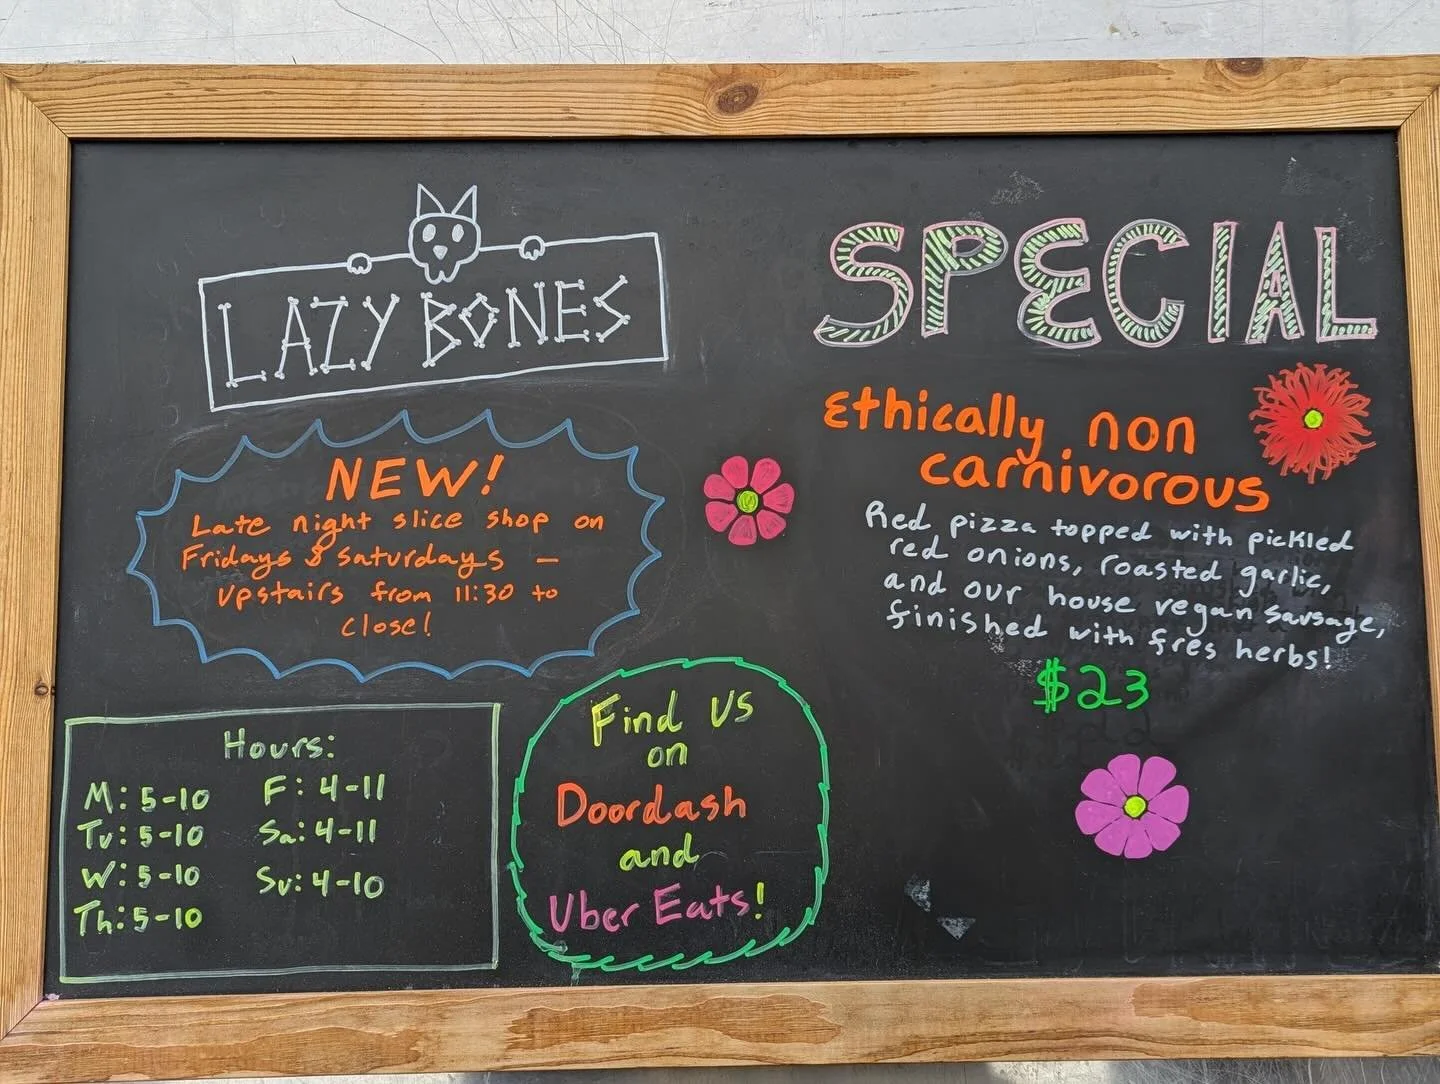 LAZY BONES
NEW!
Late night slice shop on
Fridays & Saturdays —
upstairs from 11:30 to
close!
Hours:
M: 5-10
Tu: 5-10
W: 5-10
Th: 5-10
F: 4-11
Sa: 4-11
Su: 4-10
Find us
on
Doordash
and
Uber Eats!
SPECIAL
Ethically non
carnivorous
Red pizza topped with pickled
red onions, roasted garlic,
and our house vegan sausage,
finished with fres herbs!
$23